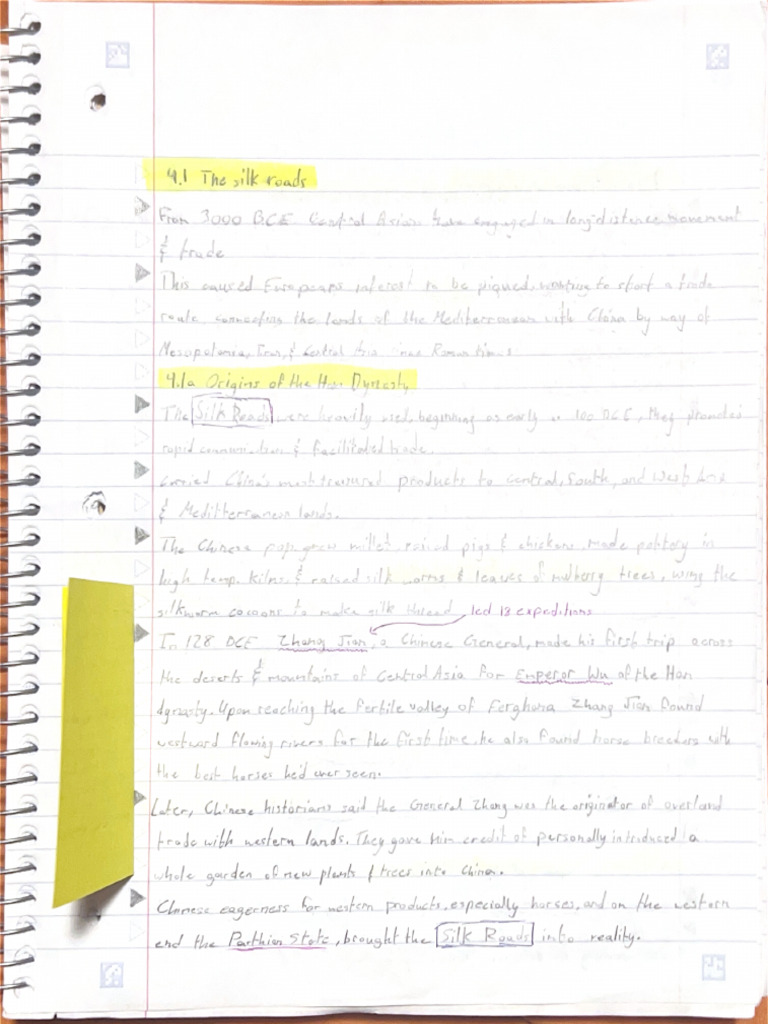 4.1 The silk roads
From 3000 BCE Central Asians have engaged in long-distance movement
& trade
This caused Europeans interest to be piqued, wanting to start a trade
route connecting the lands of the Mediterranean with China by way of
Mesopotamia, Iran, & Central Asia since Roman times
4.1a Origins of the Han Dynasty
The Silk Roads were heavily used, beginning as early as 100 BCE, they provided
rapid & facilitated trade.
Carried China's most treasured products to central, South, and West Asia
& Mediterranean lands.
The Chinese pop. grew millet, raised pigs & chickens, made pottery in
high temp. kilns, & raised silk worms & leaves of mulberry trees, using the
silkworm cocoons to make silk thread
led 18 expeditions
In 128 BCE Zhang Jian, a Chinese General, made his first trip across
the deserts & mountains of Central Asia for Emperor Wu of the Han
dynasty. Upon reaching the fertile valley of Ferghana Zhang Jian found
westward flowing rivers for the first time, he also found horse breeders with
the best horses he'd ever seen.
Later, Chinese historians said the General Zhang was the originator of overland
trade with western lands. They gave him credit of personally introduced a
whole garden of new plants & trees into China.
Chinese eagerness for western products, especially horses, and on the western
end the Parthian State, brought the Silk Roads into reality.